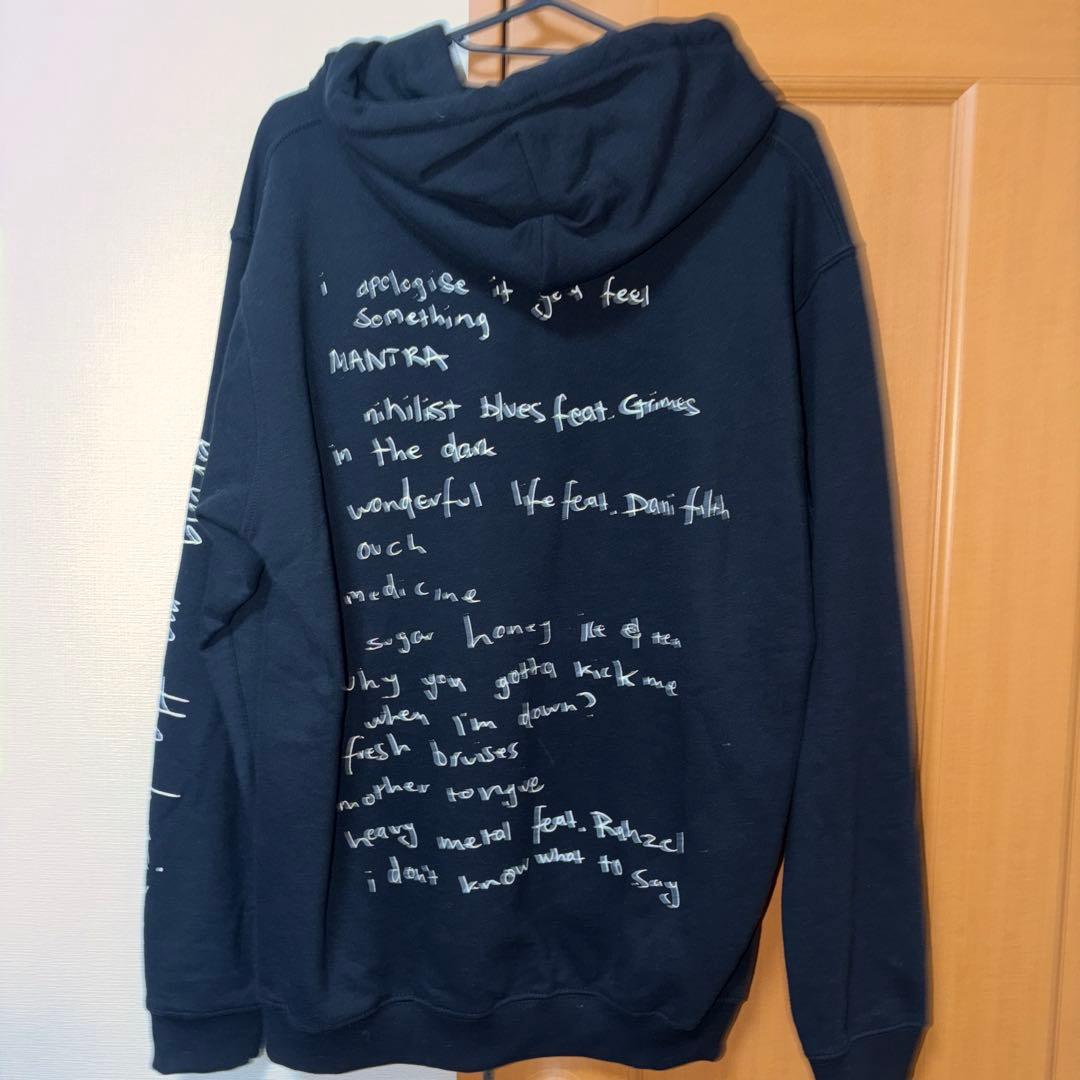 i apologise if you feel
something
MANTRA
nihilist blues feat. Grimes
in the dark
wonderful life feat. Dani filth
ouch
medicine
sugar honey ice & tea
why you gotta kick me
when I'm down?
fresh bruises
mother tongue
heavy metal feat. Rahzel
i don't know what to say